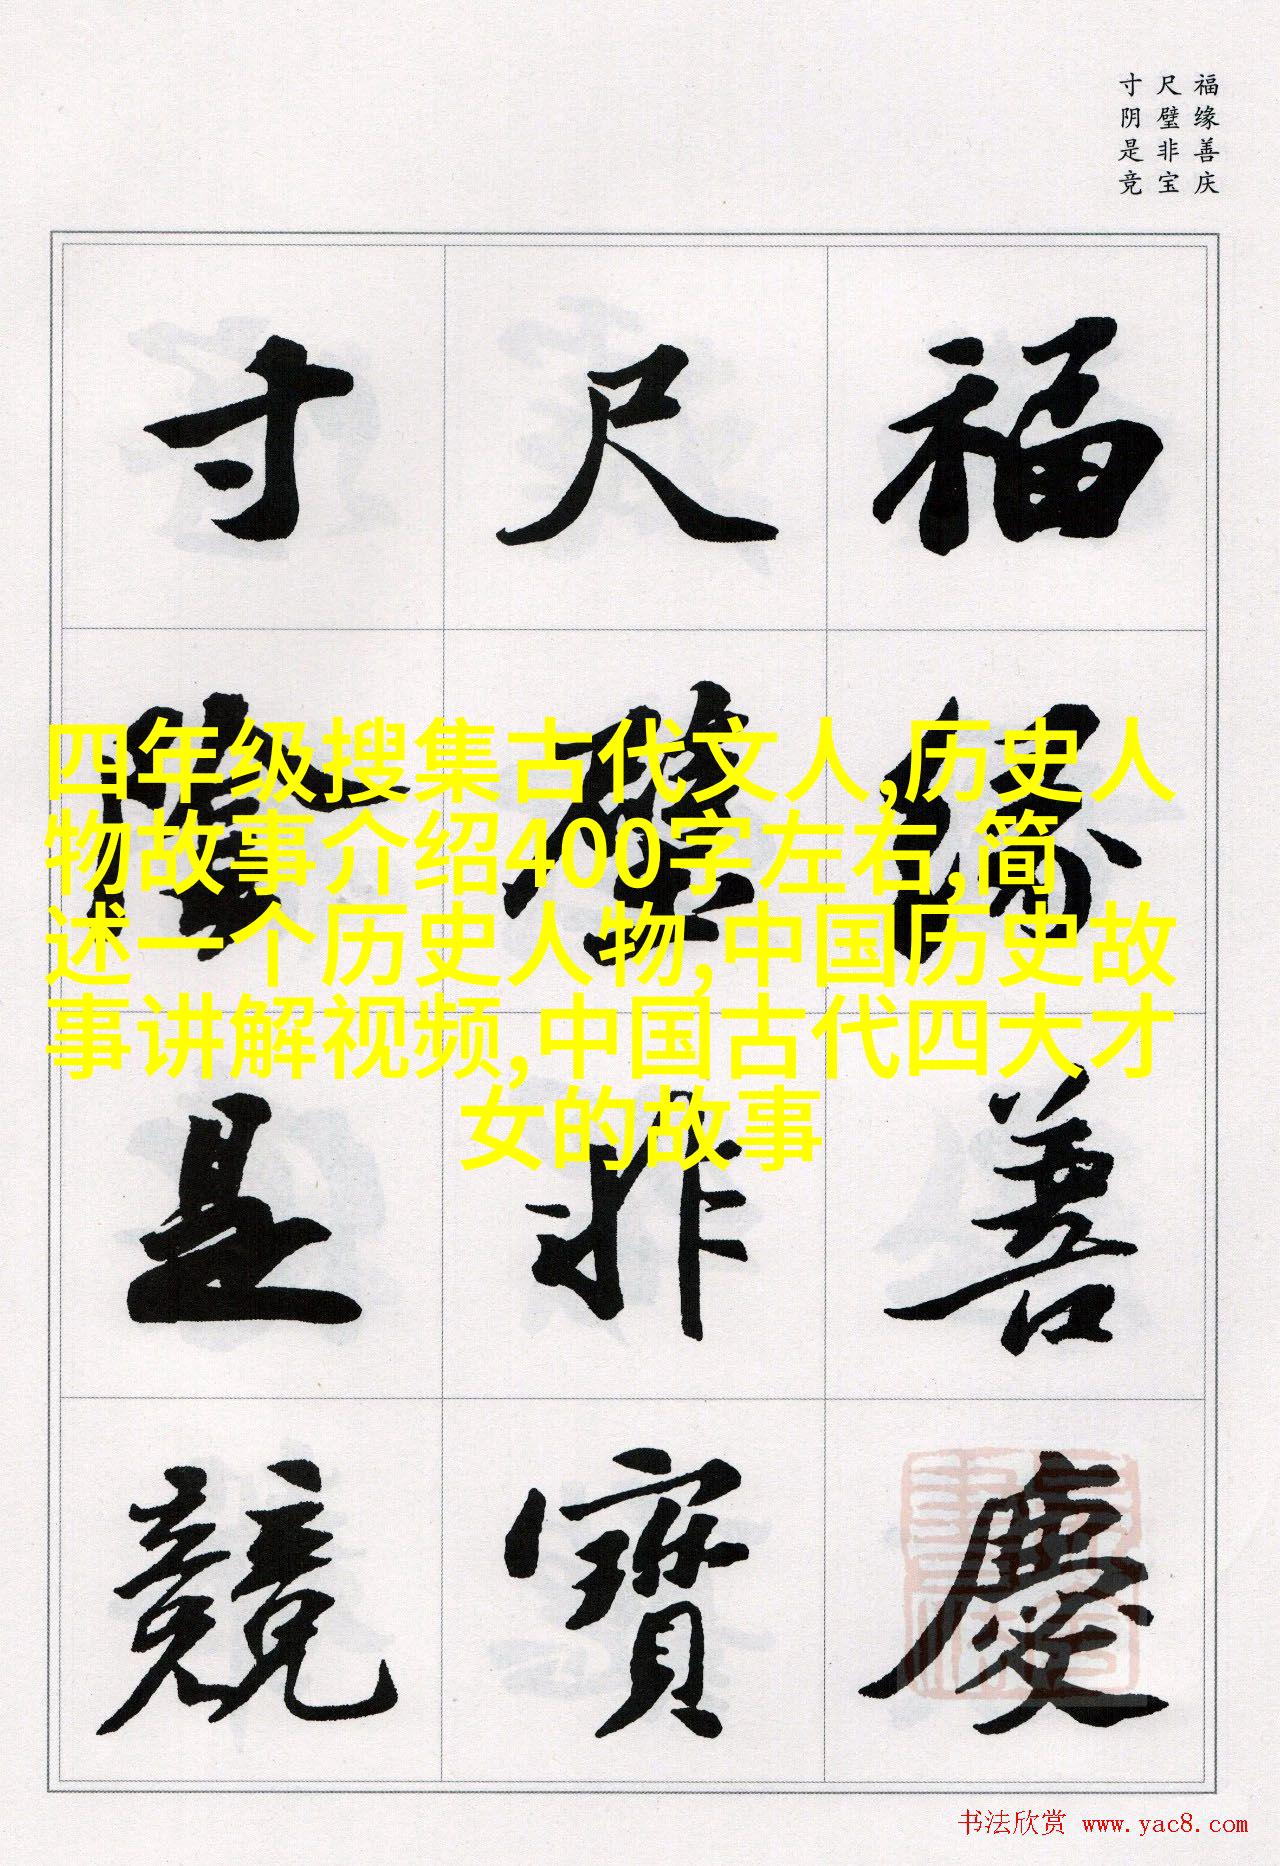 福缘善庆
尺璧非宝
寸阴是竞
福緣善慶
尺璧非寶
寸陰是競
四年级搜集古代文人,历史人
物故事介绍400字左右,简
述一个历史人物,中国历史故
事讲解视频,中国古代四大才
女的故事
书法欣赏 www.yac8.com